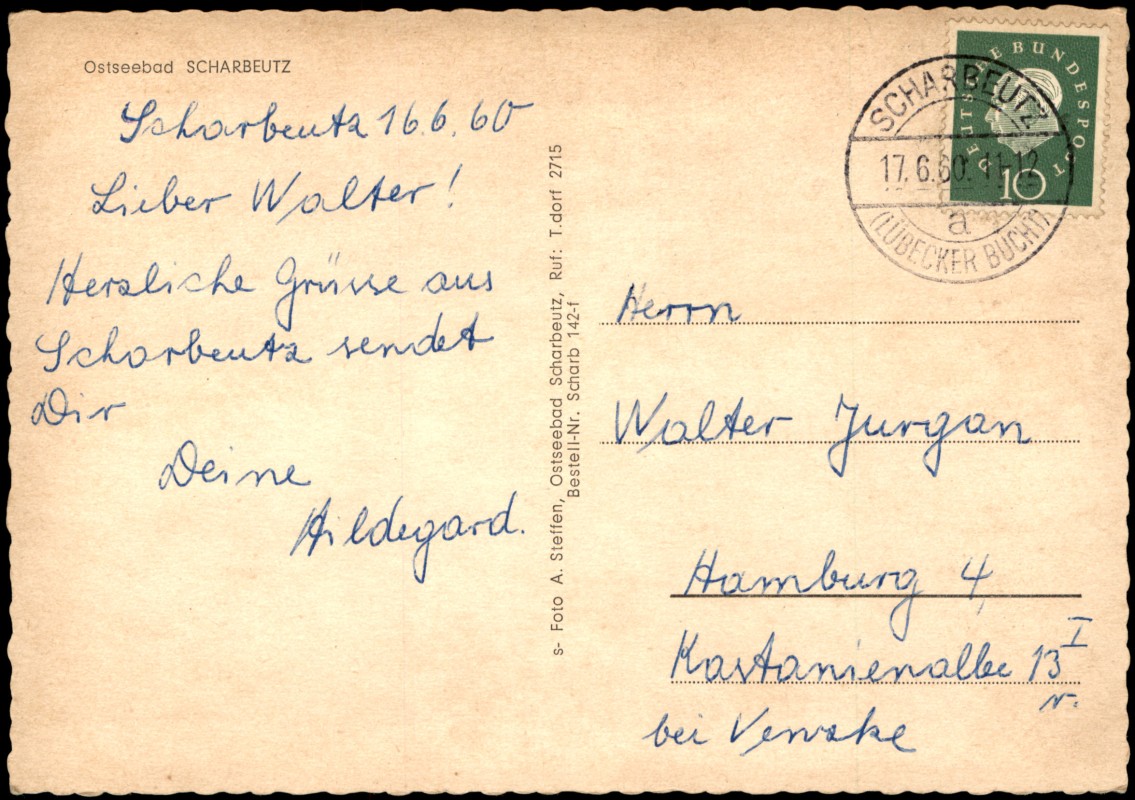 Ostseebad SCHARBEUTZ
Scharbeutz 16.6.60
Lieber Walter!
Herzliche Grüsse aus
Scharbeutz sendet
Dir
Deine
Hildegard.
s- Foto A. Steffen, Ostseebad Scharbeutz, Ruf: T.dorf 2715
Bestell-Nr. Scharb 142-f
DEUTSCHE BUNDESPOST
10
SCHARBEUTZ
17.6.60. 11-12
a
(LÜBECKER BUCHT)
Herrn
Walter Jurgan
Hamburg 4,
Kastanienallee 13 I
r.
bei